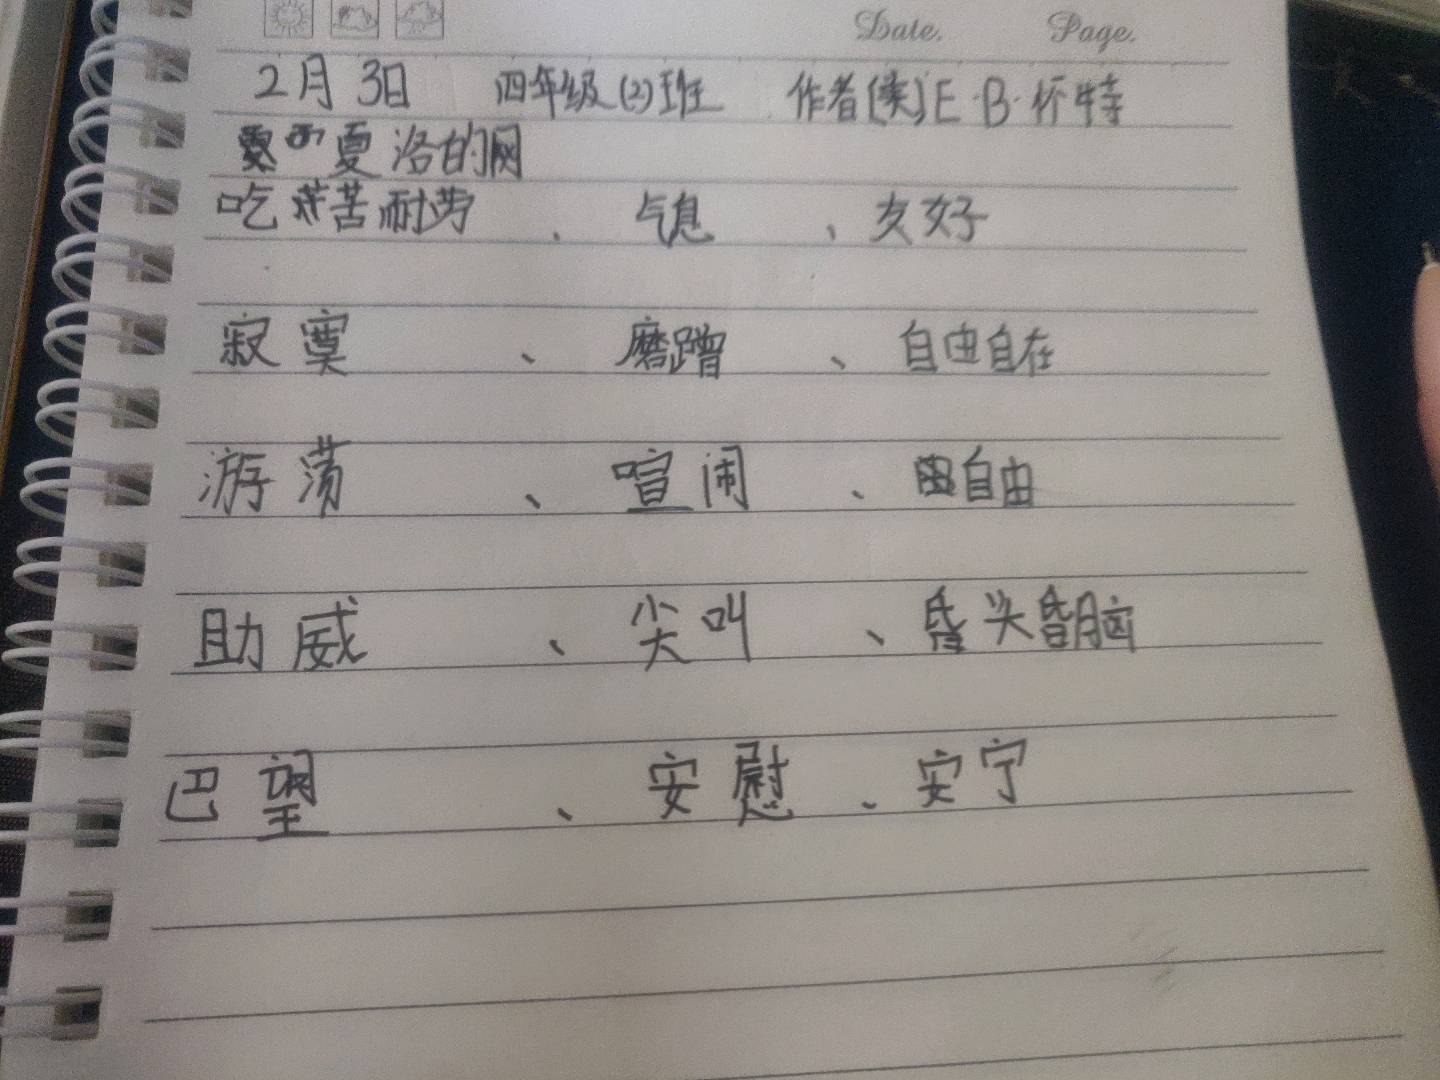 Date. Page.
2月3日 四年级(2)班 作者[美]E·B·怀特
夏洛的网
吃苦耐劳、气息、友好
寂寞、磨蹭、自由自在
游荡、喧闹、自由
助威、尖叫、昏头昏脑
巴望、安慰、安宁